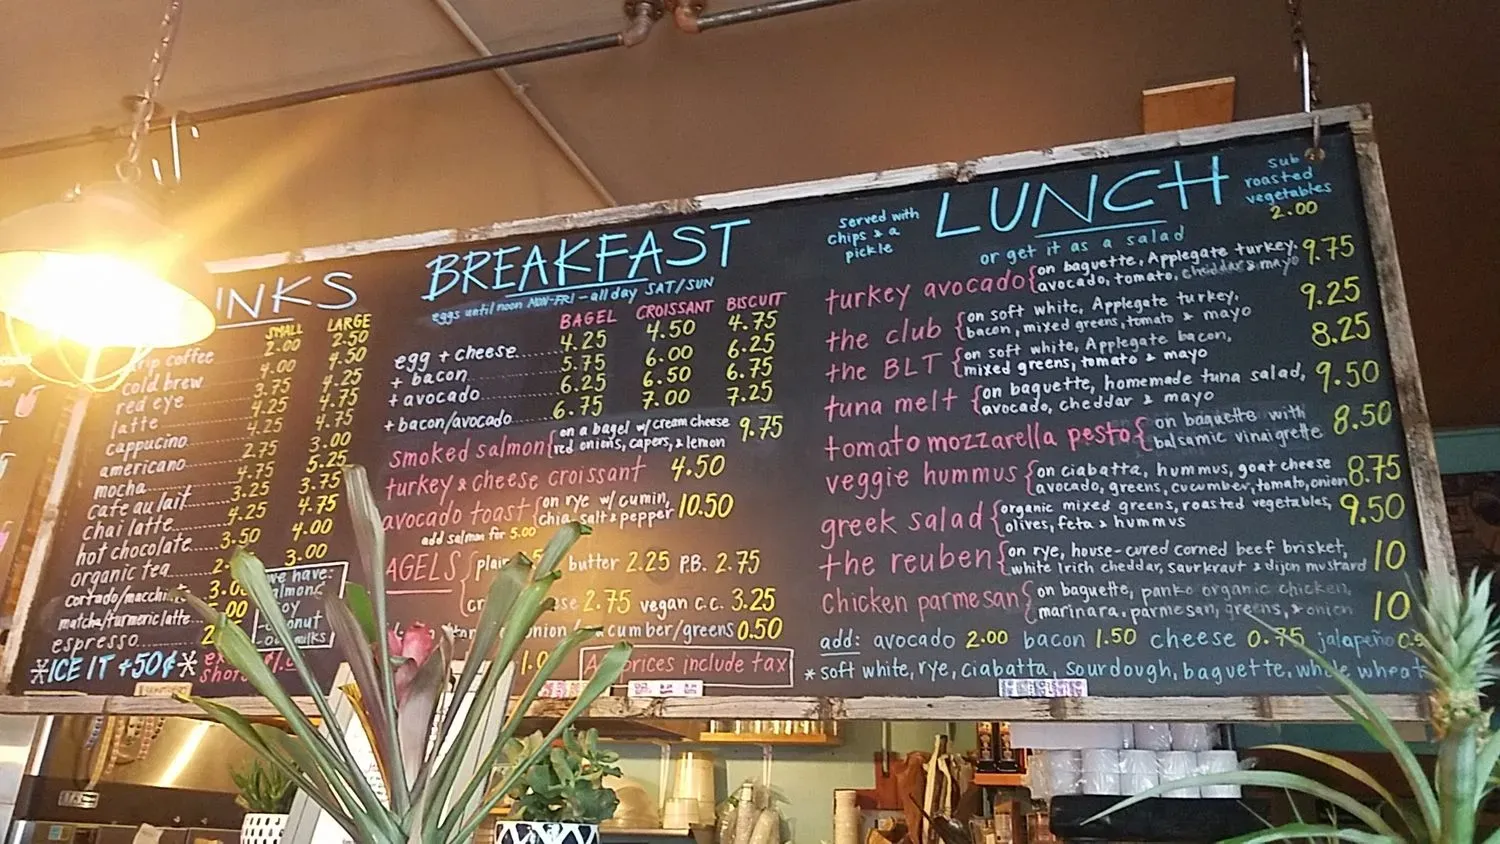 INKS
SMALL LARGE
drip coffee 2.00 2.50
cold brew 4.00 4.50
red eye 3.75 4.25
latte 4.25 4.75
cappuccino 4.25 4.75
americano 2.75 3.00
mocha 4.75 5.25
cafe au lait 3.25 3.75
chai latte 4.25 4.75
hot chocolate 3.50 4.00
organic tea 3.00
cortado/macchi
matcha/turmeric latte
espresso
*ICE IT +50¢*
we have:
BREAKFAST
eggs until noon MON-FRI - all day SAT/SUN
BAGEL CROISSANT BISCUIT
egg + cheese 4.25 4.50 4.75
+ bacon 5.75 6.00 6.25
+ avocado 6.25 6.50 6.75
+ bacon/avocado 6.75 7.00 7.25
smoked salmon { on a bagel w/cream cheese 9.75
red onions, capers, & lemon
turkey & cheese croissant 4.50
avocado toast { on rye w/ cumin, 10.50
chia, salt & pepper
add salmon for 5.00
AGELS { plain butter 2.25 P.B. 2.75
2.75 vegan c.c. 3.25
onion/ cumber/greens 0.50
prices include tax
served with
chips & a
pickle
LUNCH
or get it as a salad
sub
roasted
vegetables
2.00
turkey avocado { on baguette, Applegate turkey, 9.75
avocado, tomato, cheddar & mayo
the club { on soft white, Applegate turkey, 9.25
bacon, mixed greens, tomato & mayo
the BLT { on soft white, Applegate bacon, 8.25
mixed greens, tomato & mayo
tuna melt { on baguette, homemade tuna salad, 9.50
avocado, cheddar & mayo
tomato mozzarella pesto { on baguette with 8.50
balsamic vinaigrette
veggie hummus { on ciabatta, hummus, goat cheese 8.75
avocado, greens, cucumber, tomato, onion
greek salad { organic mixed greens, roasted vegetables, 9.50
olives, feta & hummus
the reuben { on rye, house-cured corned beef brisket, 10
white irish cheddar, saurkraut & dijon mustard
chicken parmesan { on baguette, panko organic chicken, 10
marinara, parmesan, greens, & onion
add: avocado 2.00 bacon 1.50 cheese 0.75 jalapeño
*soft white, rye, ciabatta, sourdough, baguette, whole wheat